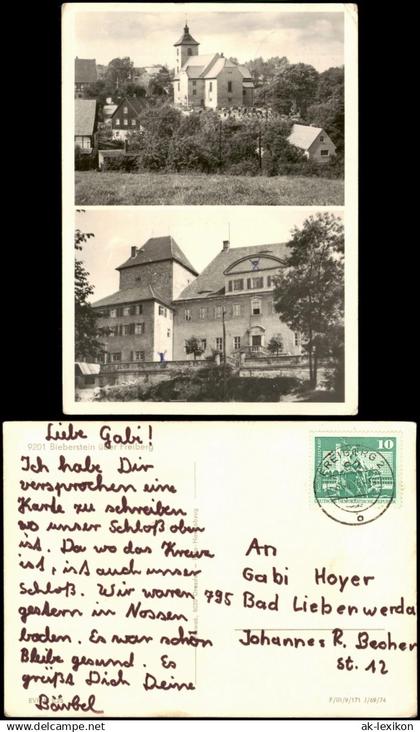 © ak-lexikon
Liebe Gabi!
9201 Bieberstein über Freiberg
Ich habe Dir
versprochen eine
Karde zu schreiben
wo unser Schloß oben
ist. Da wo das Kreuze
ist, ist auch unser
Schloß. Wir waren
gestern in Nossen
baden. Es war schön
Bleibe gesund. Es
grüßt Dich Deine
Bärbel
10
FREIBERG 2
DEUTSCHE DEMOKRATISCHE REPUBLIK
An
Gabi Hoyer
795 Bad Liebenwerda
Johannes R. Becher
St. 12
F/III/9/171 J/69/74
ak-lexikon.com